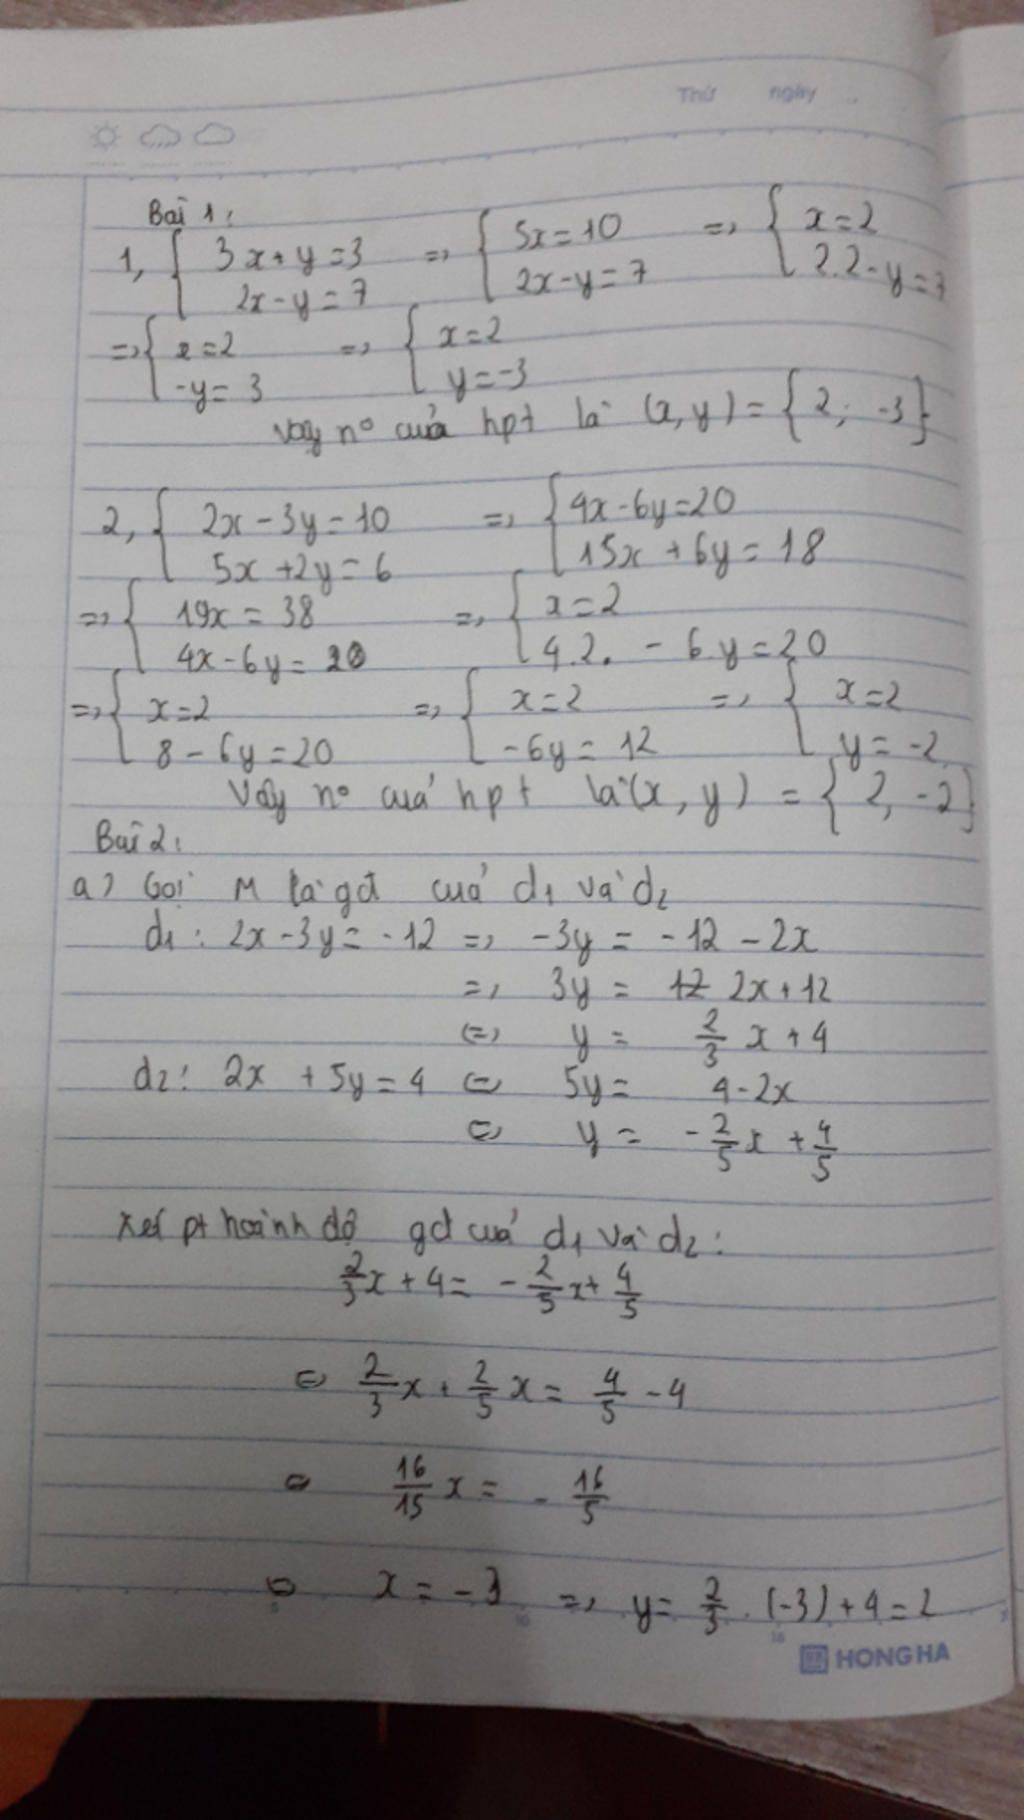 Thứ ngày
Bài 1:
1, { 3x + y = 3 => { 5x = 10 => { x = 2
2x - y = 7 2x - y = 7 2.2 - y = 7
=> { x = 2 => { x = 2
-y = 3 y = -3
Vậy n° của hpt là (x, y) = { 2; -3 }
2, { 2x - 3y = 10 => { 4x - 6y = 20
5x + 2y = 6 15x + 6y = 18
=> { 19x = 38 => { x = 2
4x - 6y = 20 4.2. - 6.y = 20
=> { x = 2 => { x = 2 => { x = 2
8 - 6y = 20 -6y = 12 y = -2
Vậy n° của hpt là (x, y) = { 2, -2 }
Bài 2:
a) Gọi M là gđ của d₁ và d₂
d₁: 2x - 3y = -12 => -3y = -12 - 2x
=> 3y = 12 2x + 12
<=> y = 2/3 x + 4
d₂: 2x + 5y = 4 <=> 5y = 4 - 2x
<=> y = -2/5 x + 4/5
Xét pt hoành độ gđ của d₁ và d₂:
2/3 x + 4 = -2/5 x + 4/5
<=> 2/3 x + 2/5 x = 4/5 - 4
<=> 16/15 x = - 16/5
<=> x = -3 => y = 2/3 . (-3) + 4 = 2
HONG HA